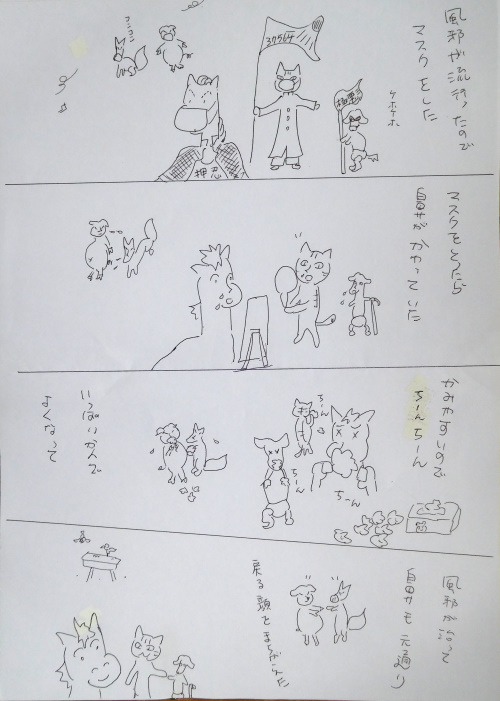 風邪が流行ったので
マスクをした
37564
ケホケホ
コンコン
押忍
マスクをとったら
鼻がかわっていた
かみやすいので
ちーんちーん
ちーん
ちーん
ちーん
いっぱいかんで
よくなって
風邪が治って
鼻も元通り
戻る顔をまちがえた